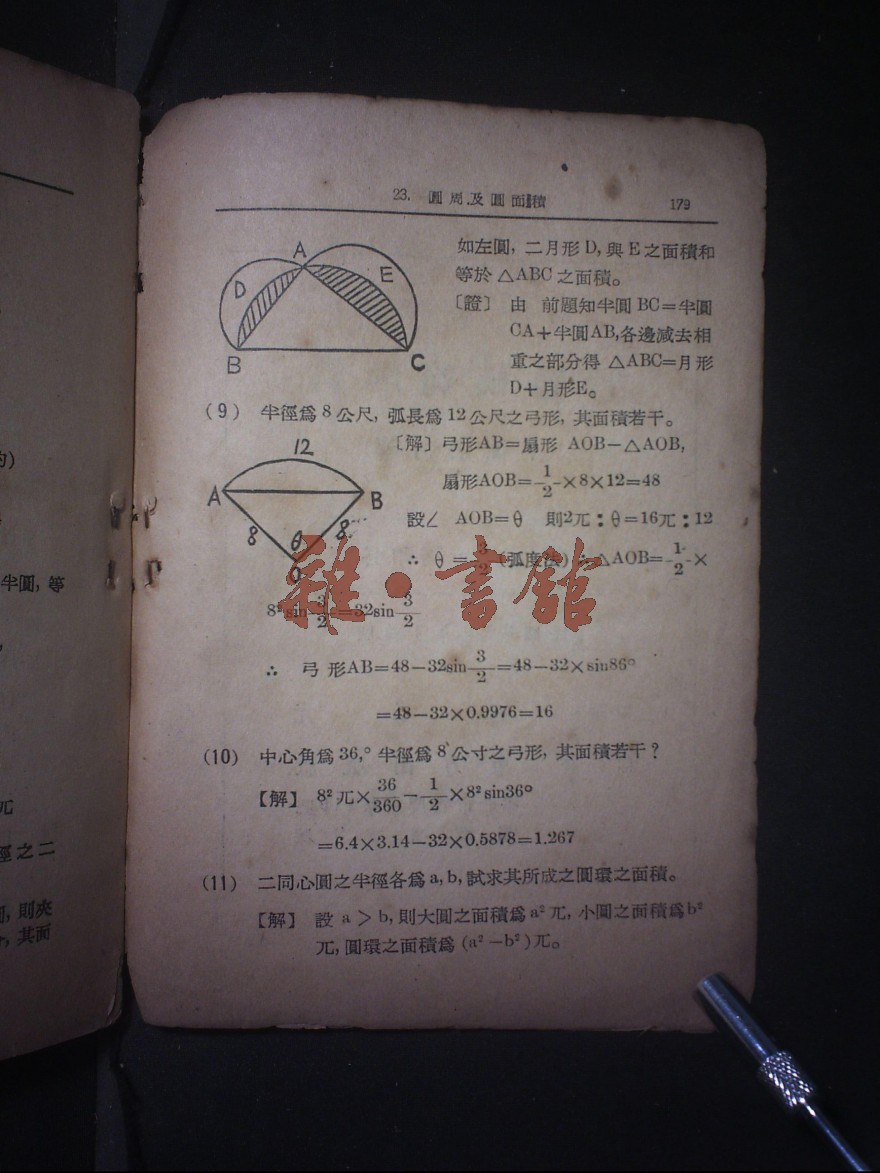 23. 圓周及圓面積 179
如左圓, 二月形 D, 與 E 之面積和
等於 △ABC 之面積。
〔證〕 由 前題知半圓 BC=半圓
CA+半圓AB, 各邊減去相
重之部分得 △ABC=月形
D+月形E。
A
D
E
B
C
(9) 半徑爲 8 公尺, 弧長爲 12 公尺之弓形, 其面積若干。
〔解〕 弓形AB=扇形 AOB-△AOB,
扇形AOB=1/2×8×12=48
設∠ AOB=θ 則2兀:θ=16兀:12
∴ θ=3/2(弧度法)∴△AOB=1/2×
12
A
B
8
θ
8
O
8²sin3/2=32sin3/2
∴ 弓形AB=48-32sin3/2=48-32×sin86°
=48-32×0.9976=16
(10) 中心角爲 36,° 半徑爲 8 公寸之弓形, 其面積若干?
【解】 8²兀×36/360-1/2×8²sin36°
=6.4×3.14-32×0.5878=1.267
(11) 二同心圓之半徑各爲 a, b, 試求其所成之圓環之面積。
【解】 設 a > b, 則大圓之面積爲 a²兀, 小圓之面積爲b²
兀, 圓環之面積爲 (a²-b²)兀。
雜·書館
的)
半圓, 等
兀
徑之二
則夾
其面